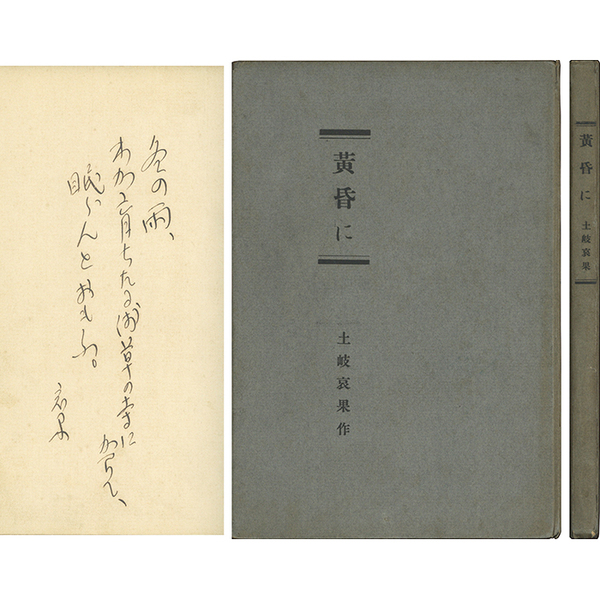 冬の雨、
わか育ちたる浅草の寺に
かへりて、
眠らんとおもふ。
哀果
黄昏に
土岐哀果作
黄昏に 土岐哀果